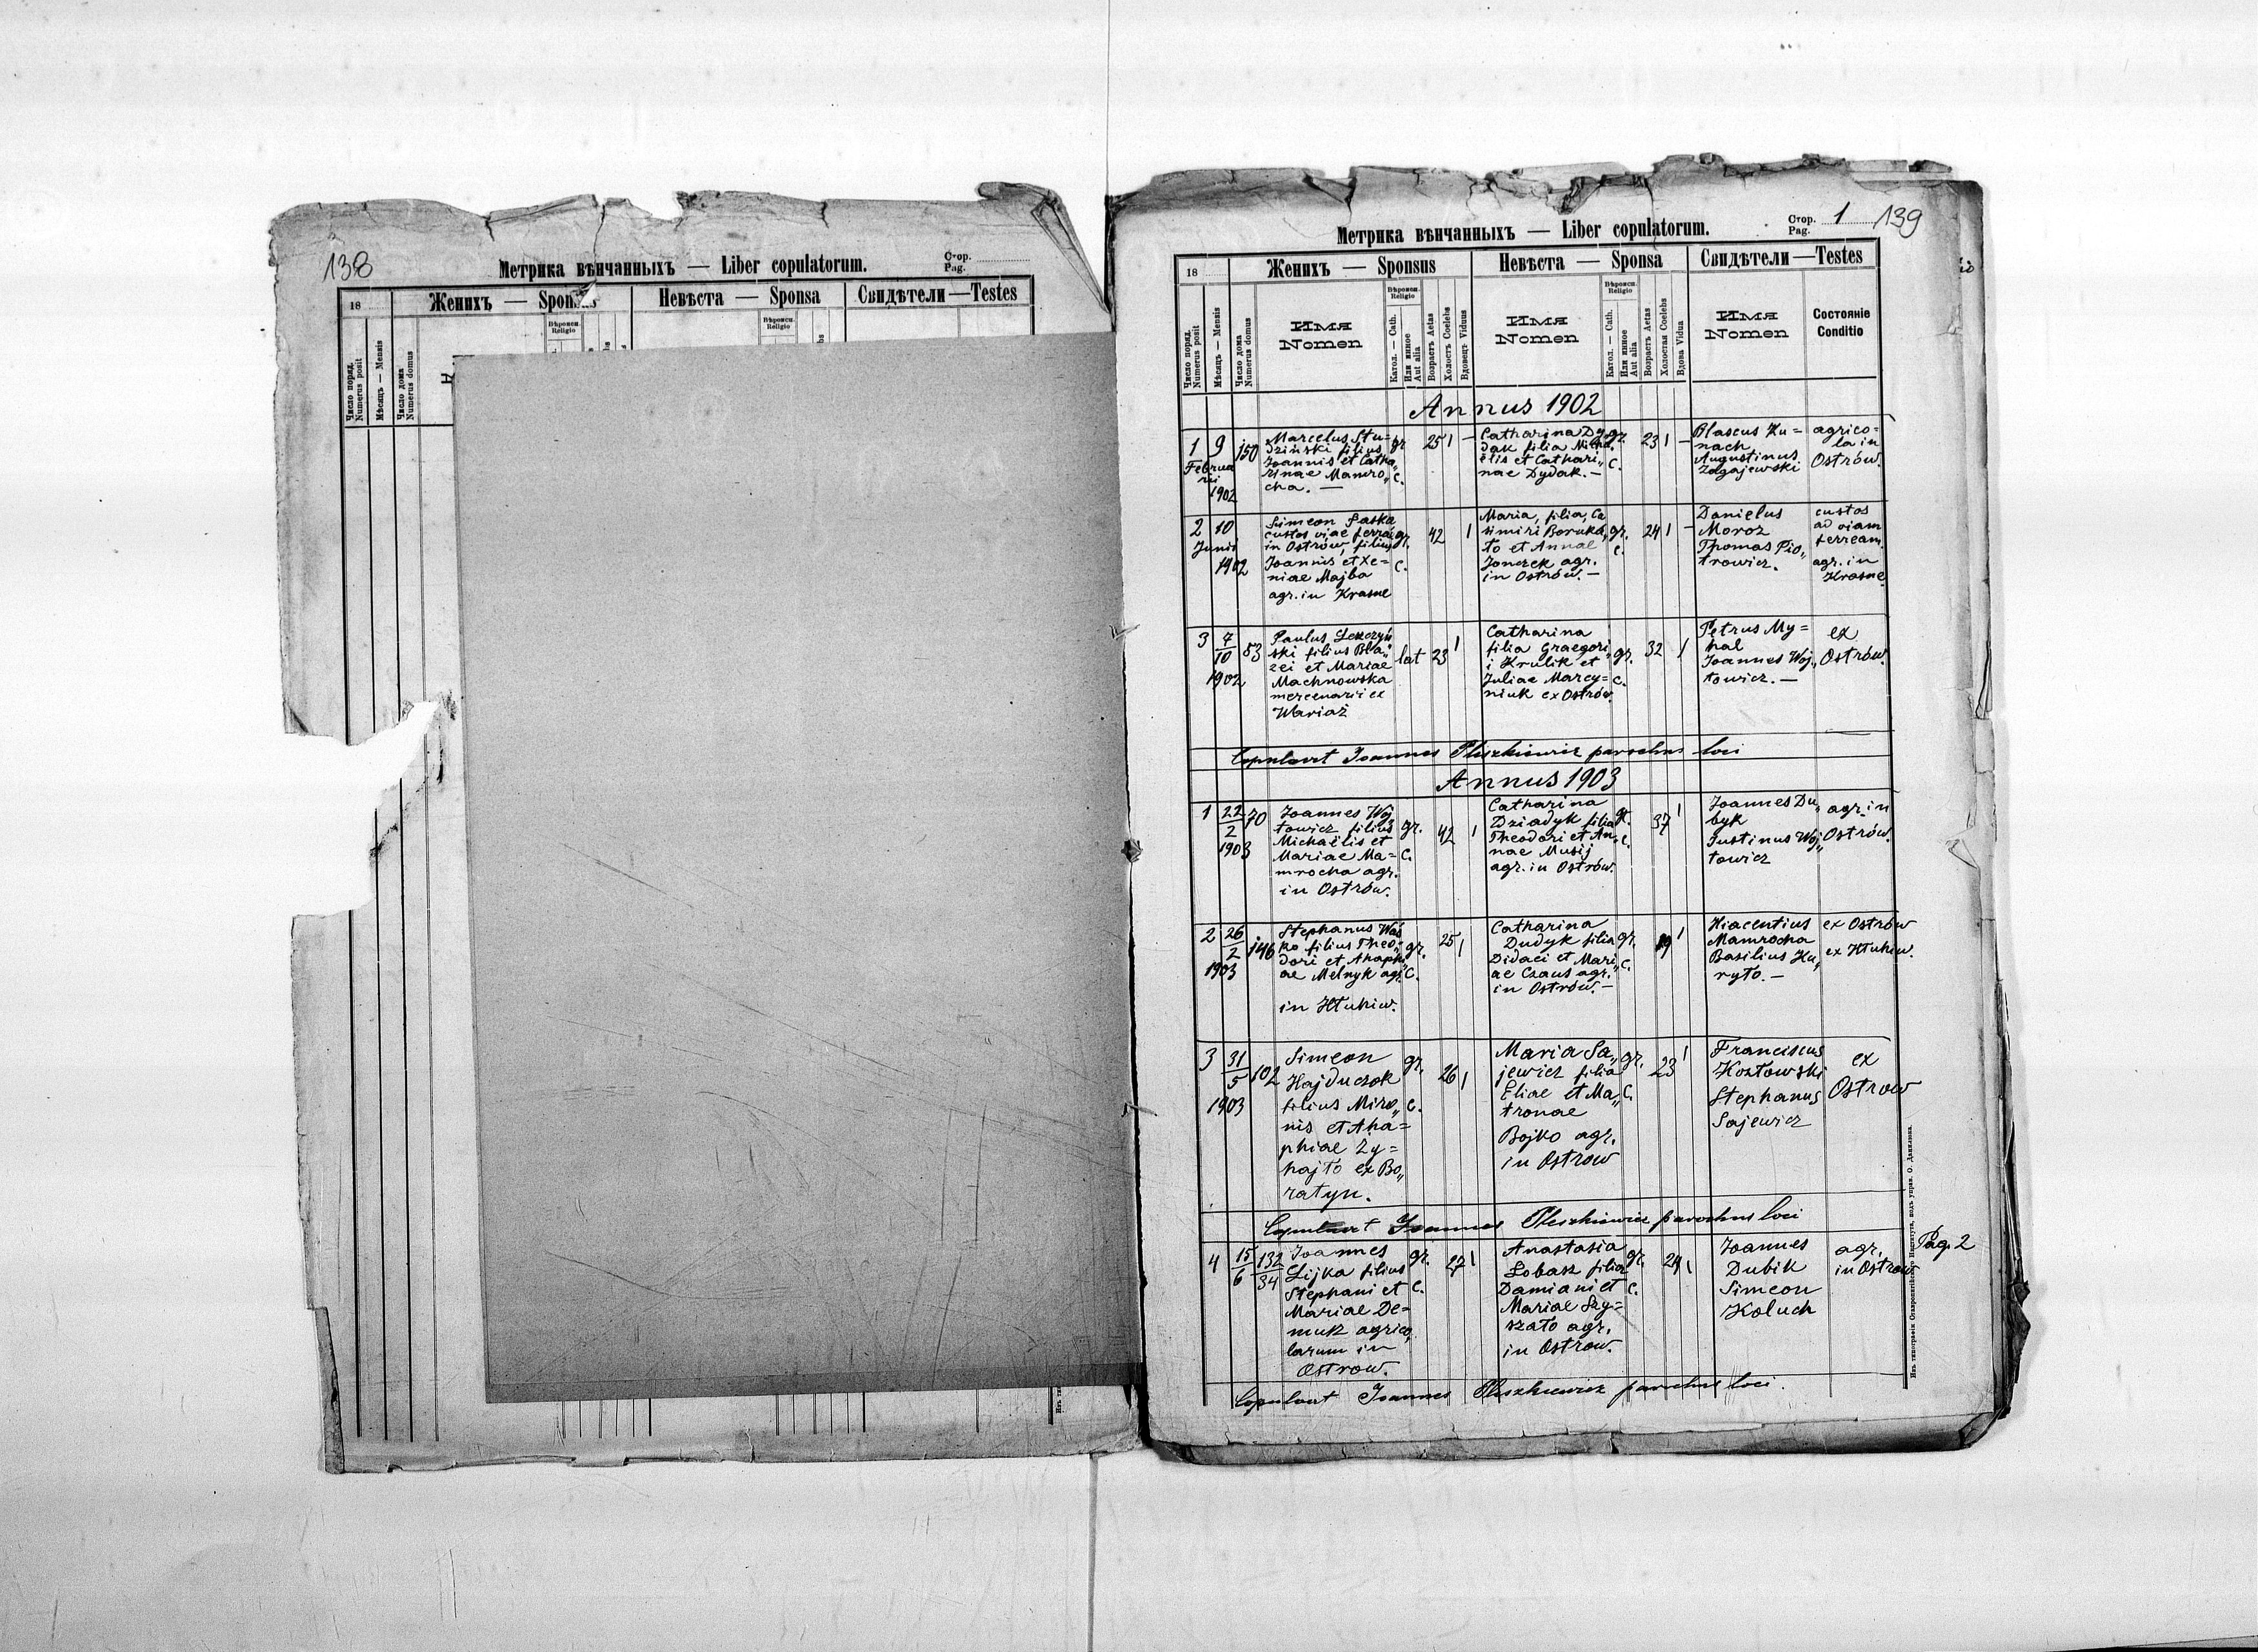 138
Метрика вѣнчанныхъ — Liber copulatorum.
Стор.
Pag.
18
Женихъ — Sponsus
Невѣста — Sponsa
Свидѣтели — Testes
Вѣроисп.
Religio
Вѣроисп.
Religio
Число поряд.
Numerus posit
Мѣсяцъ — Mensis
Число дома
Numerus domus
Стор.
Pag.
1
139
Метрика вѣнчанныхъ — Liber copulatorum.
18
Женихъ — Sponsus
Невѣста — Sponsa
Свидѣтели — Testes
Число поряд.
Numerus posit
Мѣсяцъ — Mensis
Число дома
Numerus domus
Имя
Nomen
Вѣроисп.
Religio
Катол. — Cath.
Или инное
Aut alia
Возрастъ Aetas
Холостъ Coelebs
Вдовецъ Viduus
Имя
Nomen
Вѣроисп.
Religio
Катол. — Cath.
Или инное
Aut alia
Возрастъ Aetas
Холостая Coelebs
Вдова Vidua
Имя
Nomen
Состояніе
Conditio
Annus 1902
1
9
Februa
rii
1902
150
Marcelus Stu-
dziński filius
Joannis et Catha„
rinae Mamro„
cha. —
gr.
c.
25 1 —
Catharina Dy
dak filia Micha
elis et Cathari„
nae Dydak. —
gr.
c.
23 1 —
Blasius Ku=
nach
Augustinus
Zagajewski
agrico=
la in
Ostrów.
2
10
Junii
1902
Simeon Saska
custos viae ferrae
in Ostrów, filius
Joannis et Xe-
niae Majba
agr. in Krasne
gr.
c.
42 1
Maria, filia Ca
simiri Boruká„
to et Annae
Jonczek agr.
in Ostrów. —
gr.
c.
24 1 —
Danielus
Moroz
Thomas Pio„
trowicz.
custos
ad viam
ferream.
agr. in
Krasne
3
7
10
1902
83
Paulus Leszczyń
ski filius Bla„
zei et Mariae
Machnowska
mercenarii ex
Wariaż
lat
23 1
Catharina
filia Graegori„
i Krulik et
Juliae Marcy=
niuk ex Ostrów.
gr.
c.
32 1
Petrus My=
hal
Joannes Woj„
towicz. —
ex
Ostrów.
Copulavit Joannes Pleszkiewicz parochus loci
Annus 1903
1
22
2
1903
70
Joannes Woj
towicz filius
Michaëlis et
Mariae Ma=
mrocha agr.
in Ostrów.
gr.
c.
42 1
Catharina
Dziadyk filia
Theodori et An„
nae Musij
agr. in Ostrów.
gr.
c.
37 1
Joannes Du„
byk
Justinus Woj„
towicz
agr. in
Ostrów.
2
26
2
1903
146
Stephanus Waś
ko filius Theo„
dori et Ahaphi
ae Melnyk agr.
in Hłuhiw.
gr.
c.
25 1
Catharina
Dudyk filia
Didaci et Mari
ae Czaus agr.
in Ostrów. —
gr.
c.
19 1
Hiacentius
Mamrocha
Basilius Ku„
ryło. —
ex Ostrów
ex Hłuhiw.
3
31
5
1903
102
Simeon
Hajduczok
filius Miro„
nis et Aha=
phiae Zy=
hajło ex Bo„
ratyn.
gr.
c.
26 1
Maria Sa„
jewicz filia
Eliae et Ma„
tronae
Bojko agr.
in Ostrow
gr.
c.
23 1
Franciscus
Kozłowski
Stephanus
Sajewicz
ex
Ostrow
Copulavit Joannes Pleszkiewicz parochus loci
4
15
6
132
34
Joannes
Lijka filius
Stephani et
Mariae De=
muk agrico„
larum in
Ostrow.
gr.
c.
27 1
Anastasia
Łobasz filia
Damiani et
Mariae Szy=
szato agr.
in Ostrow.
gr.
c.
24 1
Joannes
Dubik
Simeon
Koluch
agr.
in Ostrow
Pag. 2
Copulavit Joannes Pleszkiewicz parochus loci.
Изъ типографіи Ставропигійского Института, подъ управ. О. Данилюка.